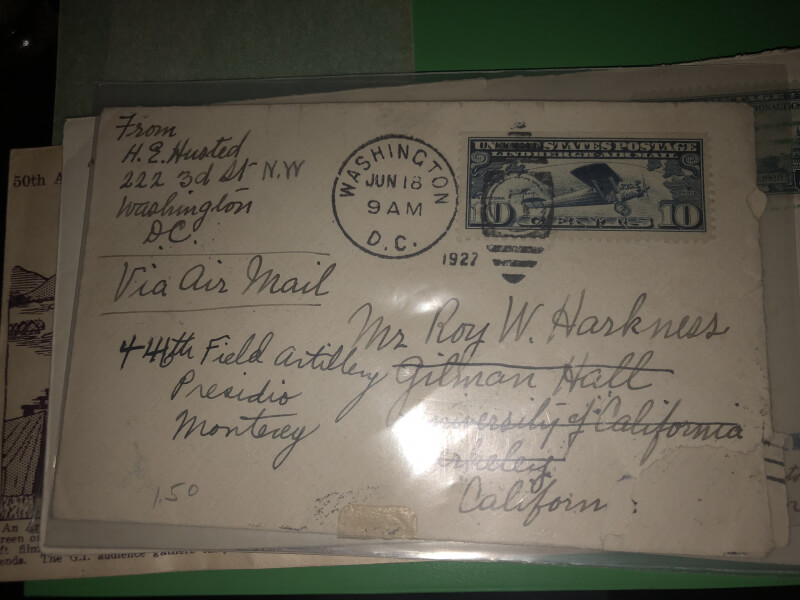 From
H. E. Husted
222 3d St N.W
Washington
D.C.
Via Air Mail
WASHINGTON
JUN 18
9 AM
D. C.
1927
UNITED STATES POSTAGE
LINDBERGH AIR MAIL
10 CENTS 10
Mr Roy W. Harkness
Gilman Hall
University of California
Berkeley
Californ
Field Artillery
Presidio
Monterey
1.50
50th A
An
reen o
ft film
ends. The G.I. audience